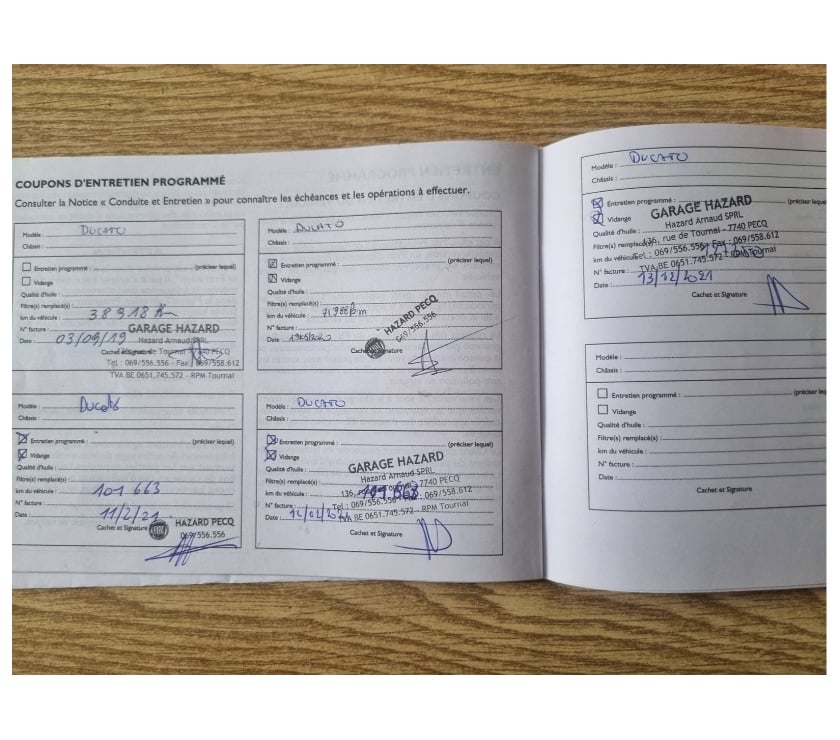 COUPONS D'ENTRETIEN PROGRAMMÉ
Consulter la Notice « Conduite et Entretien » pour connaître les échéances et les opérations à effectuer.
Modèle : DUCATO
Châssis :
Entretien programmé : (préciser lequel)
Vidange
Qualité d'huile :
Filtre(s) remplacé(s) :
km du véhicule : 38 918 Km
N° facture : GARAGE HAZARD
Hazard Arnaud SPRL
Date : 03/09/19
Cachet et Signature de Tournai 7740 PECQ
Tel : 069/556.556 - Fax 069/558.612
TVA BE 0651.745.572 - RPM Tournai
Modèle : DUCATO
Châssis :
Entretien programmé : (préciser lequel)
Vidange
Qualité d'huile :
Filtre(s) remplacé(s) :
km du véhicule :
N° facture :
Date :
HAZARD PECQ
069/556.556
Cachet et Signature
Modèle : Ducato
Châssis :
Entretien programmé : (préciser lequel)
Vidange
Qualité d'huile :
Filtre(s) remplacé(s) :
km du véhicule : 101 663
N° facture :
Date : 11/2/21
Cachet et Signature
FIAT
HAZARD PECQ
069/556.556
Modèle : DUCATO
Châssis :
Entretien programmé : (préciser lequel)
Vidange
Qualité d'huile : GARAGE HAZARD
Filtre(s) remplacé(s) : Hazard Arnaud SPRL
km du véhicule : 136, 7740 PECQ
N° facture : Tel : 069/556.556 - Fax : 069/558.612
TVA BE 0651.745.572 - RPM Tournai
Date :
Cachet et Signature
Modèle : DUCATO
Châssis :
Entretien programmé : (préciser
Vidange GARAGE HAZARD
Qualité d'huile : Hazard Arnaud SPRL
Filtre(s) remplacé(s) : 136, rue de Tournai - 7740 PECQ
km du véhicule : Tel : 069/556.556 - Fax : 069/558.612
N° facture : TVA BE 0651.745.572 - RPM Tournai
Date : 13/12/2021
Cachet et Signature
Modèle :
Châssis :
Entretien programmé : (préciser leq
Vidange
Qualité d'huile :
Filtre(s) remplacé(s) :
km du véhicule :
N° facture :
Date :
Cachet et Signature